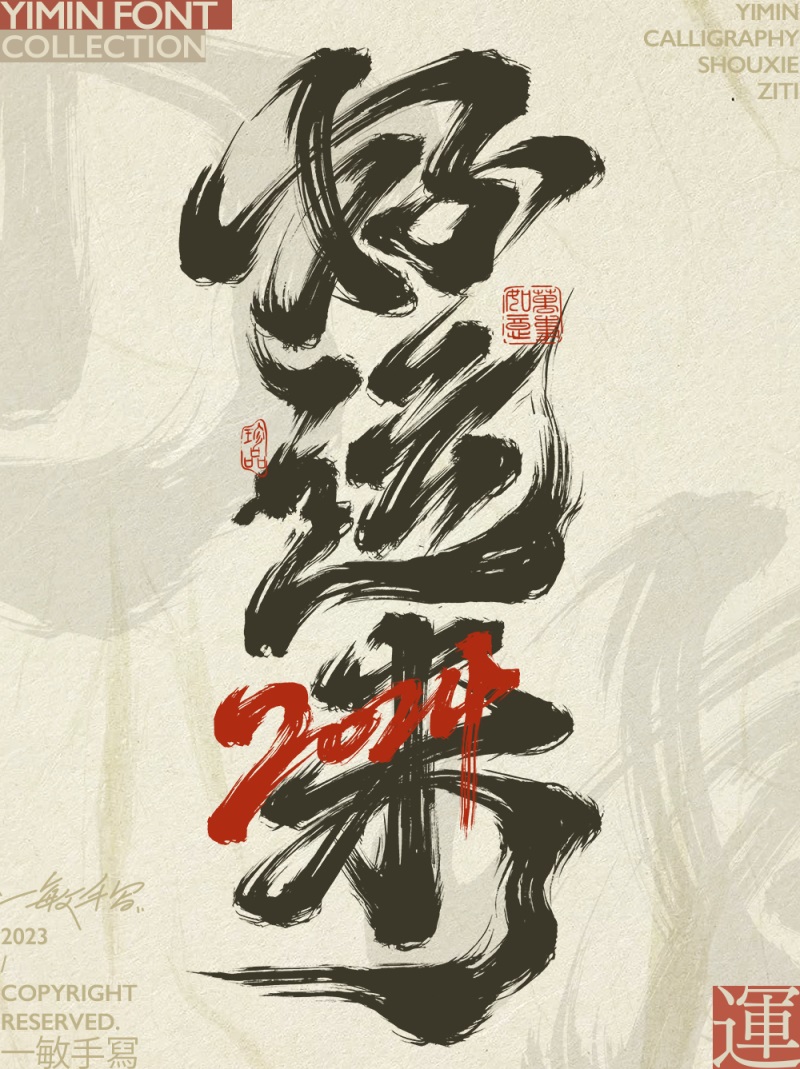 YIMIN FONT
COLLECTION
YIMIN
CALLIGRAPHY
SHOUXIE
ZITI
好
运
来
萬事
如意
珍品
2024
一敏手写
2023
/
COPYRIGHT
RESERVED.
一敏手寫
運